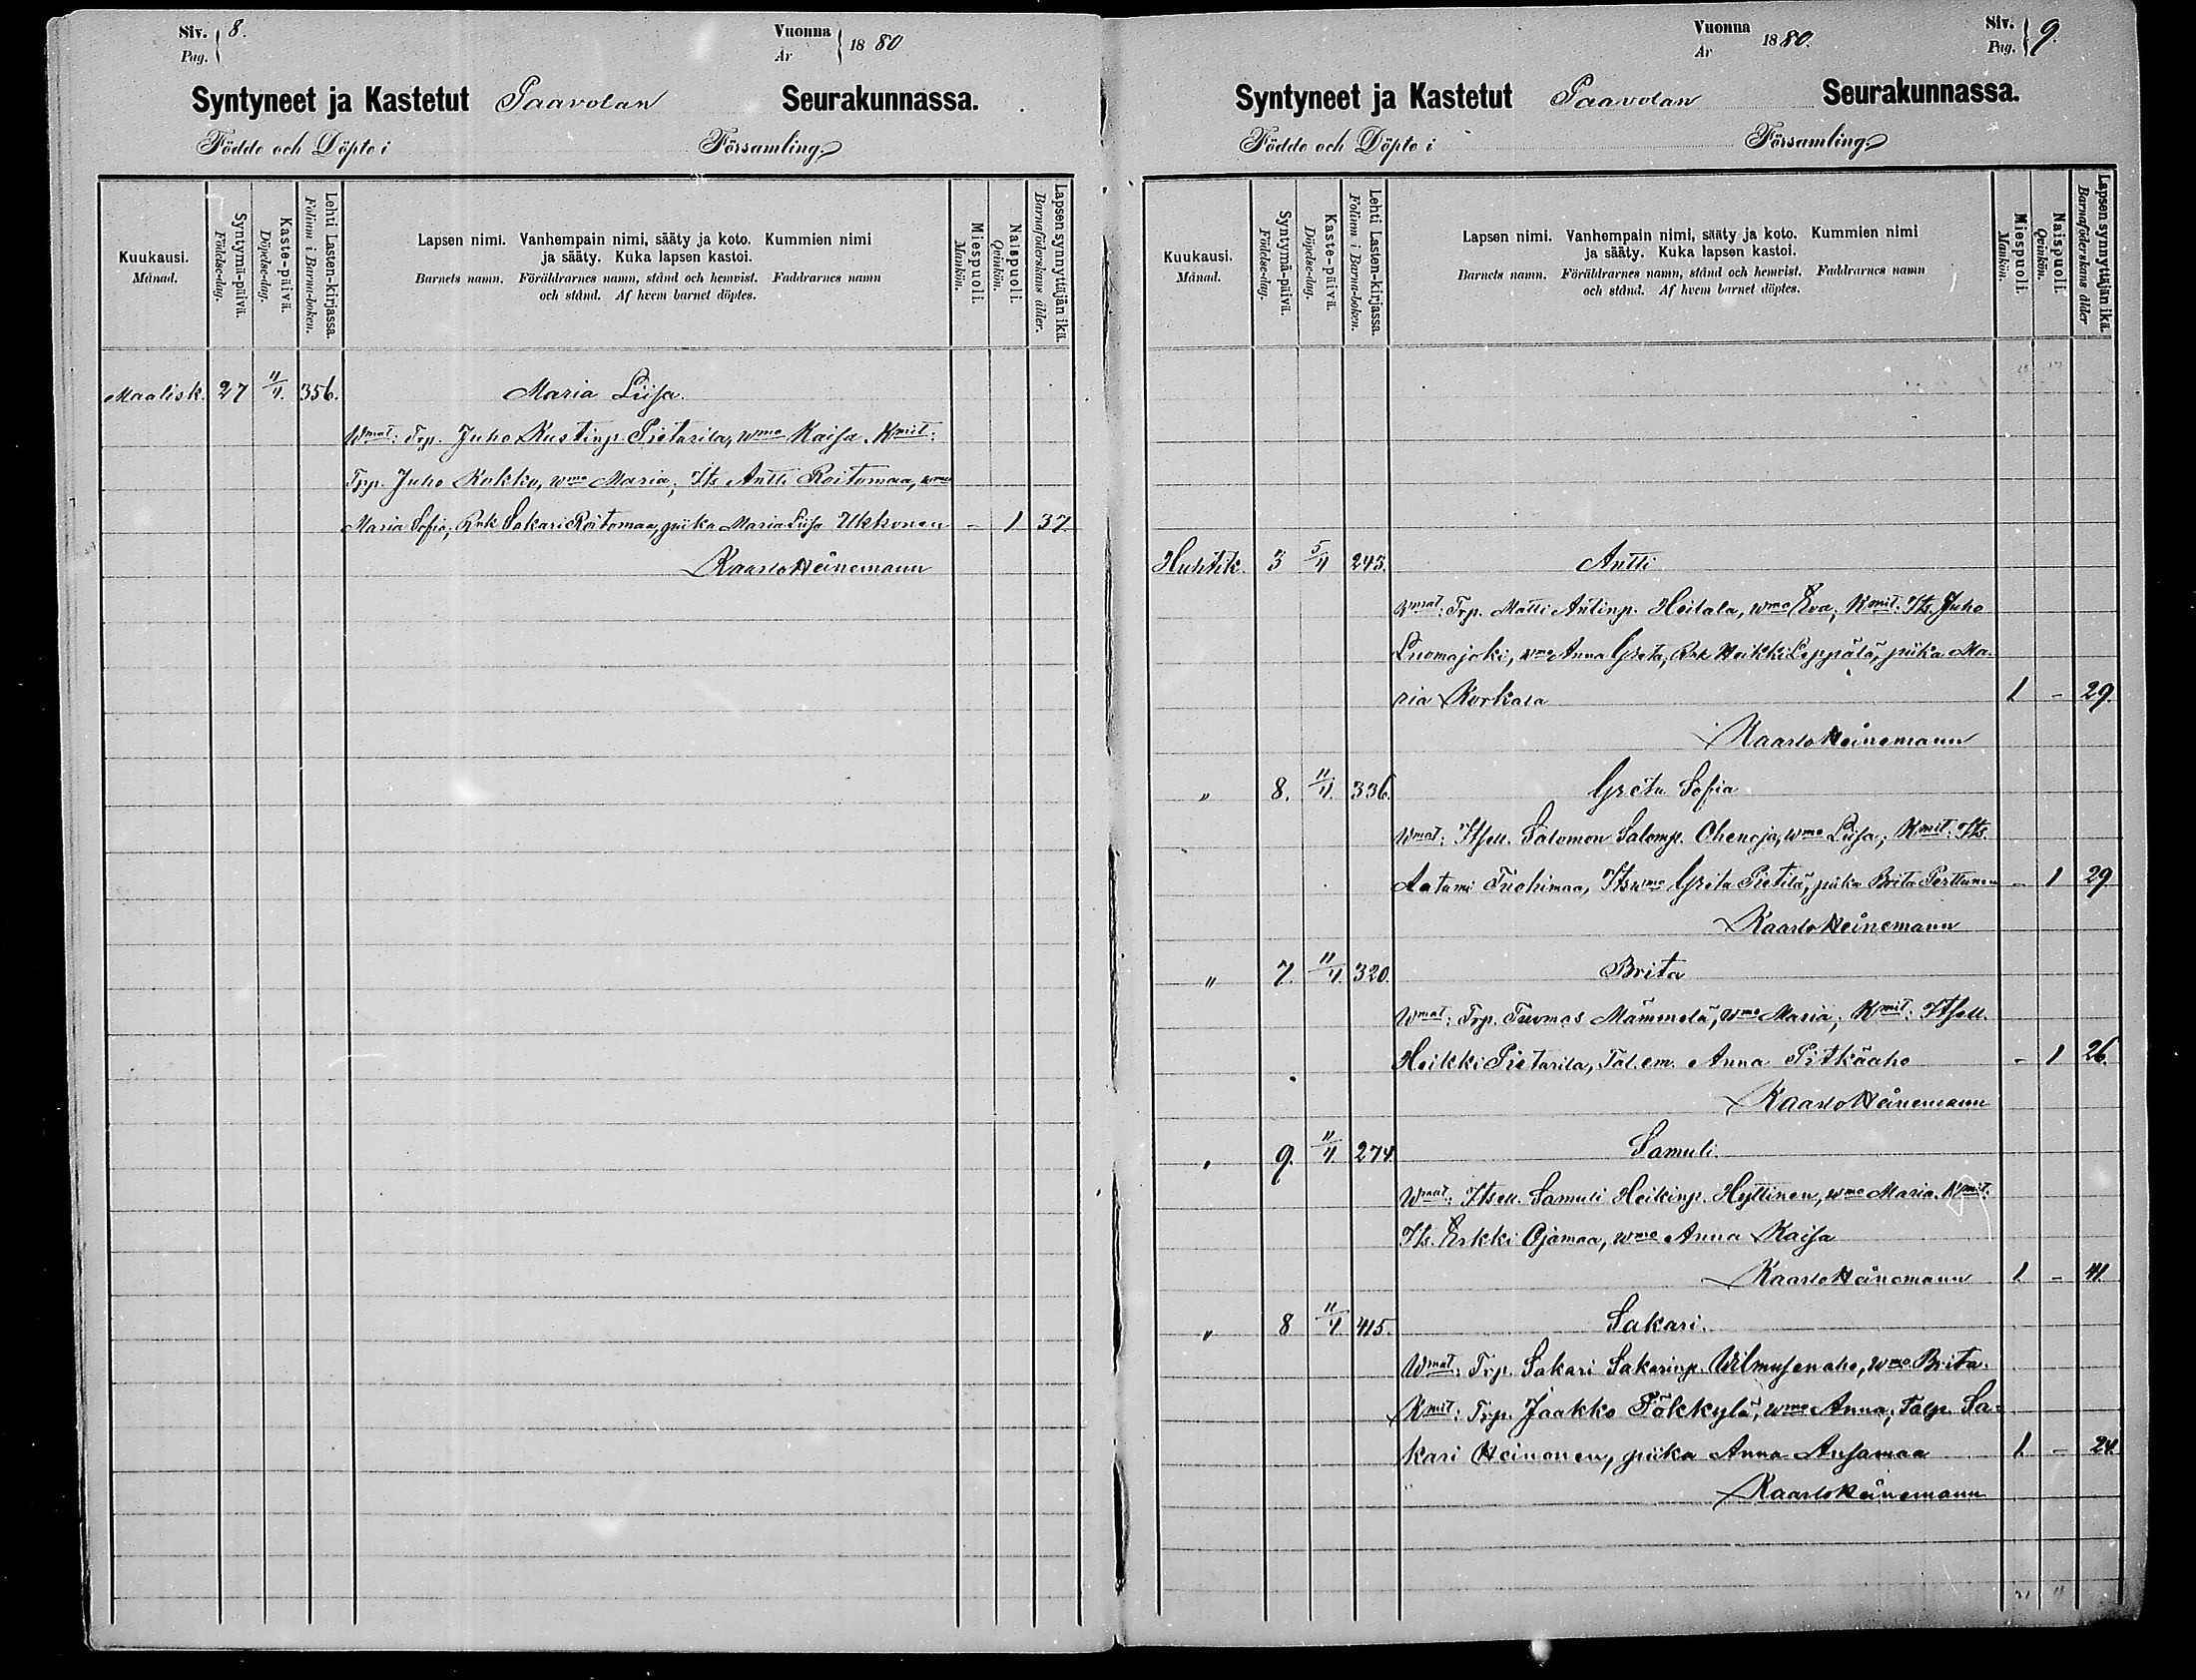 Siv. 8.
Pag.
Vuonna
År 1880
Syntyneet ja Kastetut Paavolan Seurakunnassa.
Födde och Döpte i Församling.
Kuukausi.
Månad.
Syntymä-päivä.
Födelse-dag.
Kaste-päivä.
Döpelse-dag.
Lehti Lasten-kirjassa.
Folium i Barna-boken.
Lapsen nimi. Vanhempain nimi, sääty ja koto. Kummien nimi
ja sääty. Kuka lapsen kastoi.
Barnets namn. Föräldrarnes namn, stånd och hemvist. Faddrarnes namn
och stånd. Af hvem barnet döptes.
Miespuoli.
Mankön.
Naispuoli.
Qvinkön.
Lapsen synnyttäjän ikä.
Barnaföderskans ålder.
Maalisk. 27 11/4. 356. Maria Liisa.
Wmat: Trp. Juho Kustinp. Pietarila, wmo Kaisa. Kmit:
Trp. Juho Kokko, wmo Maria; Its Antti Roitomaa, wmo
Maria Sofia; Rnk Sakari Roitomaa, piika Maria Liisa Ukkonen - 1 37.
Kaarlo Heinemann
Vuonna
År 1880.
Siv. 9.
Pag.
Syntyneet ja Kastetut Paavolan Seurakunnassa.
Födde och Döpte i Församling.
Kuukausi.
Månad.
Syntymä-päivä.
Födelse-dag.
Kaste-päivä.
Döpelse-dag.
Lehti Lasten-kirjassa.
Folium i Barna-boken.
Lapsen nimi. Vanhempain nimi, sääty ja koto. Kummien nimi
ja sääty. Kuka lapsen kastoi.
Barnets namn. Föräldrarnes namn, stånd och hemvist. Faddrarnes namn
och stånd. Af hvem barnet döptes.
Miespuoli.
Mankön.
Naispuoli.
Qvinkön.
Lapsen synnyttäjän ikä.
Barnaföderskans ålder
Huhtik. 3 5/4 243. Antti
Wmat: Trp. Matti Antinp. Heitala, wmo Eva; Kmit: Its. Juho
Luomajoki, wmo Anna Greta; Rnk Heikki Leppälä, piika Ma-
ria Korkala 1 - 29.
Kaarlo Heinemann
" 8. 11/4. 336. Greta Sofia
Wmat: Itsell. Salomon Salomp. Ohenoja, wmo Liisa; Kmit: Its.
Aatami Tuohimaa, Itswmo Greta Pietilä, piika Brita Perttunen - 1 29
Kaarlo Heinemann
" 7. 11/4. 320. Brita
Wmat: Trp. Tuomas Mämmelä, wmo Maria; Kmit: Itsell.
Heikki Pietarila, Tal.em. Anna Pitkäaho - 1 26.
Kaarlo Heinemann
" 9. 11/4. 274. Samuli.
Wmat: Itsell. Samuli Heikinp. Hyttinen, wmo Maria. Kmit:
Its. Erkki Ojamaa, wmo Anna Kaisa
Kaarlo Heinemann 1. - 41.
" 8 11/4. 415. Sakari.
Wmat: Trp. Sakari Sakarinp. Wilmusenaho, wmo Brita.
Kmit: Trp. Jaakko Tökkylä, wmo Anna; Talp. Sa-
kari Heinonen, piika Anna Ansamaa 1. - 24.
Kaarlo Heinemann